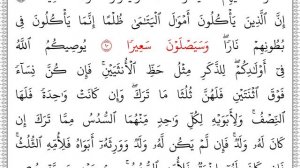 إِنَّ ٱلَّذِينَ يَأْكُلُونَ أَمْوَٰلَ ٱلْيَتَٰمَىٰ ظُلْمًا إِنَّمَا يَأْكُلُونَ فِى
بُطُونِهِمْ نَارًا ۖ وَسَيَصْلَوْنَ سَعِيرًا ١٠ يُوصِيكُمُ ٱللَّهُ
فِىٓ أَوْلَٰدِكُمْ ۖ لِلذَّكَرِ مِثْلُ حَظِّ ٱلْأُنثَيَيْنِ ۚ فَإِن كُنَّ نِسَآءً
فَوْقَ ٱثْنَتَيْنِ فَلَهُنَّ ثُلُثَا مَا تَرَكَ ۖ وَإِن كَانَتْ وَٰحِدَةً فَلَهَا
ٱلنِّصْفُ ۚ وَلِأَبَوَيْهِ لِكُلِّ وَٰحِدٍ مِّنْهُمَا ٱلسُّدُسُ مِمَّا تَرَكَ إِن
كَانَ لَهُۥ وَلَدٌ ۚ فَإِن لَّمْ يَكُن لَّهُۥ وَلَدٌ وَوَرِثَهُۥٓ أَبَوَاهُ فَلِأُمِّهِ ٱلثُّلُثُ ۚ